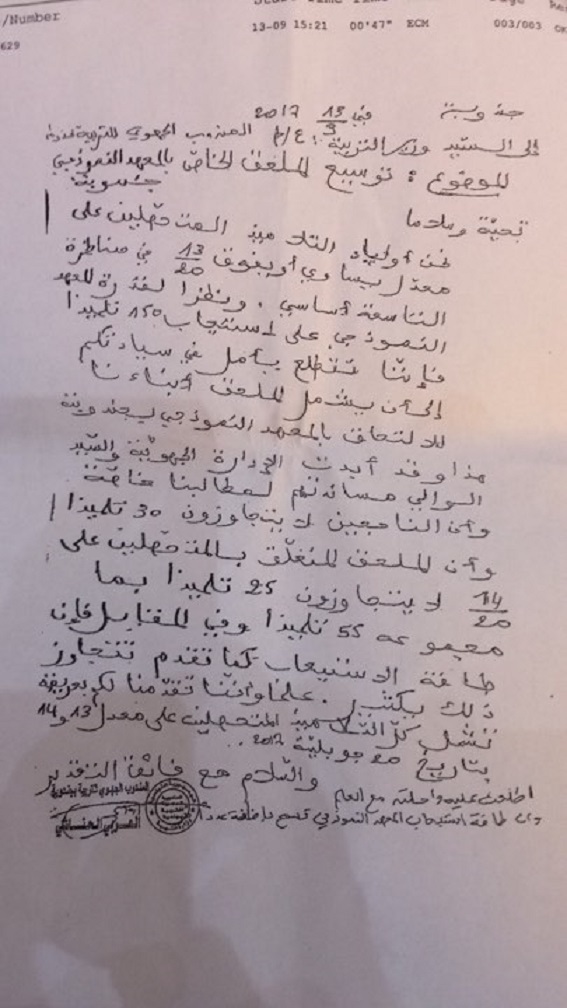 /Number
629
13-09 15:21 00'47" ECM 003/003
جندوبة في 13/9 2017
إلى السيد وزير التربية ع/م المندوب الجهوي للتربية
الموضوع : توسيع الملحق الخاص بالمعهد النموذجي
جندوبة
تحية وسلاما
نحن أولياء التلاميذ المتحصلين على
معدل يساوي أو يفوق 13/20 في مناظرة
التاسعة أساسي . ونظرا لقدرة المعهد
النموذجي على استيعاب 150 تلميذا
فإننا نتطلع بأمل في سيادتكم
إلى أن يشمل الملحق أبناءنا
للالتحاق بالمعهد النموذجي بجندوبة
هذا وقد أيدت الإدارة الجهوية والسيد
الوالي مساندتهم لمطالبنا خاصة
وأن الناجحين لا يتجاوزون 30 تلميذا
وأن الملحق المتعلق بالمتحصلين على
14/20 لا يتجاوزون 25 تلميذا بما
مجموعه 55 تلميذا وفي المقابل فإن
طاقة الاستيعاب كما تقدم تتجاوز
ذلك بكثير . علما وأننا تقدمنا لكم بعريضة
تشمل كل التلاميذ المتحصلين على معدل 13 و 14
بتاريخ 20 جويلية 2017 ..
والسلام مع فائق التقدير
اطلعت عليه وأحلته مع العلم
وأن طاقة استيعاب المعهد النموذجي تسمح بإضافة
المندوب الجهوي للتربية بجندوبة